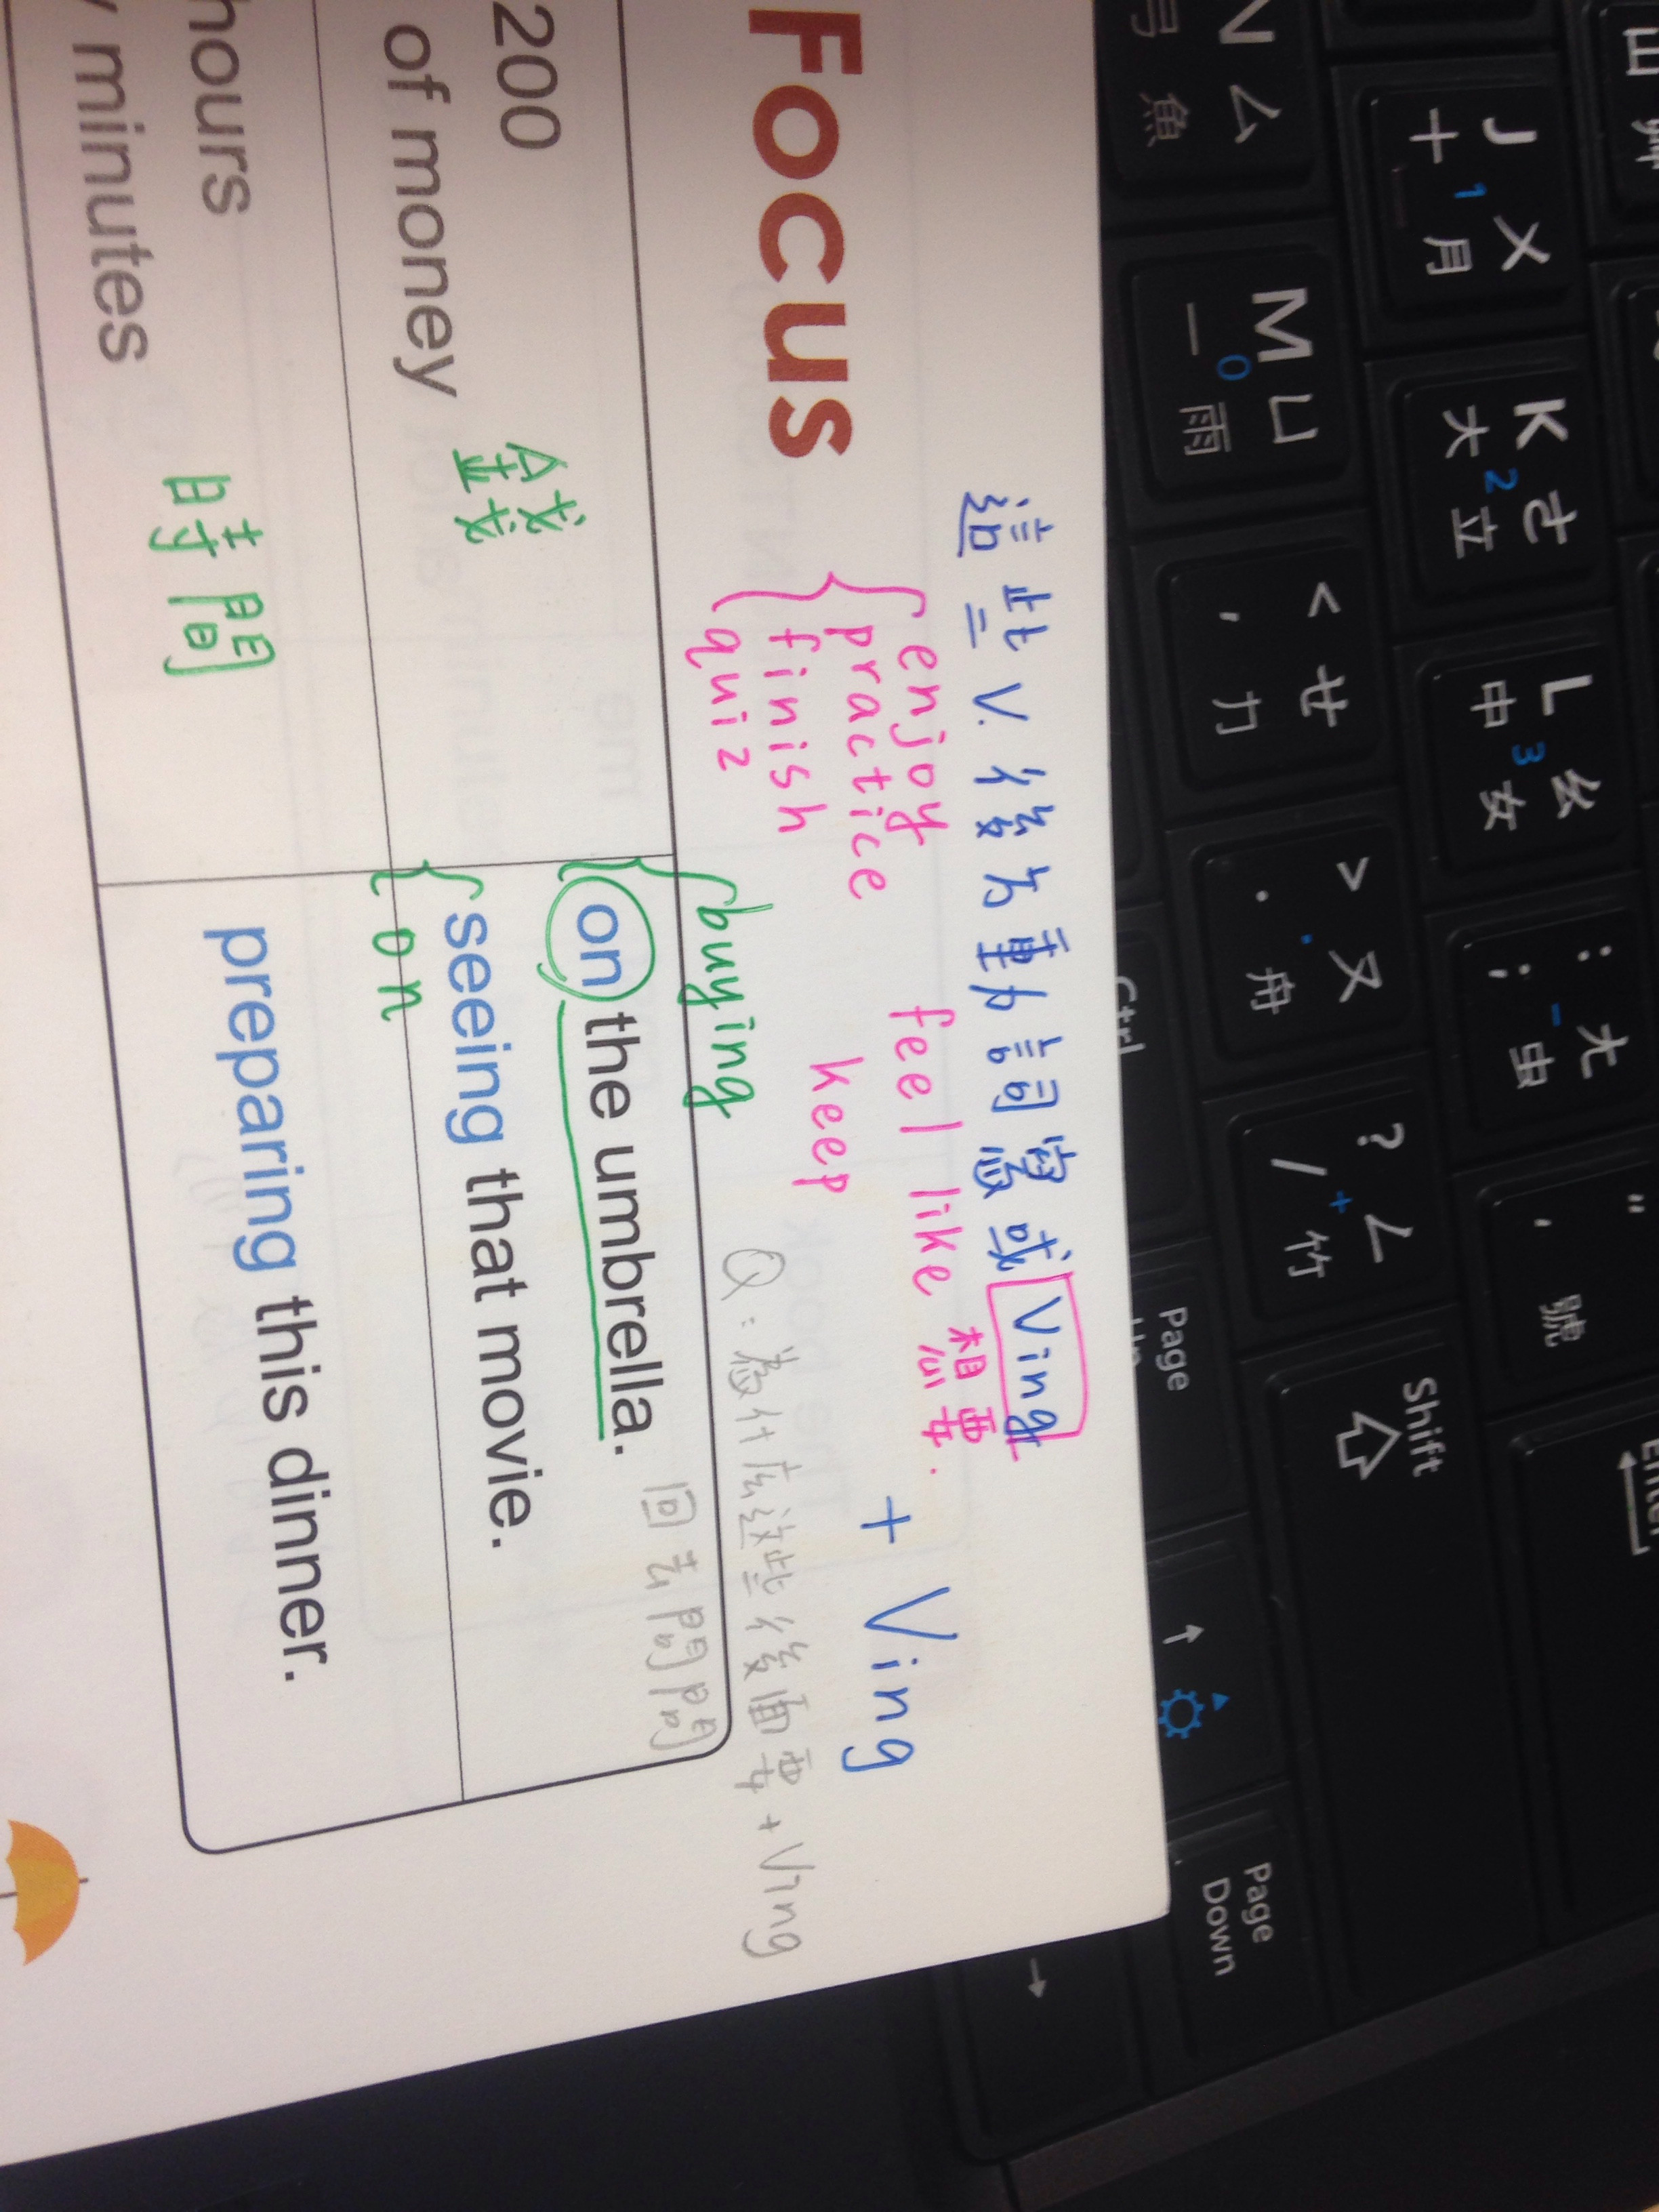 這些 V. 後為動詞or Ving
enjoy
practice
finish
quiz
feel like 想要.
keep
+ Ving
Focus
Q: 為什麼這些後面要 + Ving
回去問問
buying
200
錢
on the umbrella.
of money
seeing that movie.
on
hours
時間
minutes
preparing this dinner.
N ㄙ
弓 魚
J ㄨ
十 1 月
M ㄩ
一 0 雨
K ㄜ
大 2 立
< ㄝ
, 力
L ㄠ
中 3 女
> ㄡ
. 舟
: ㄤ
; - 虫
? ㄥ
/ + 竹
" 
' 號
Enter
Shift
Ctrl
Page
Up
Page
Down